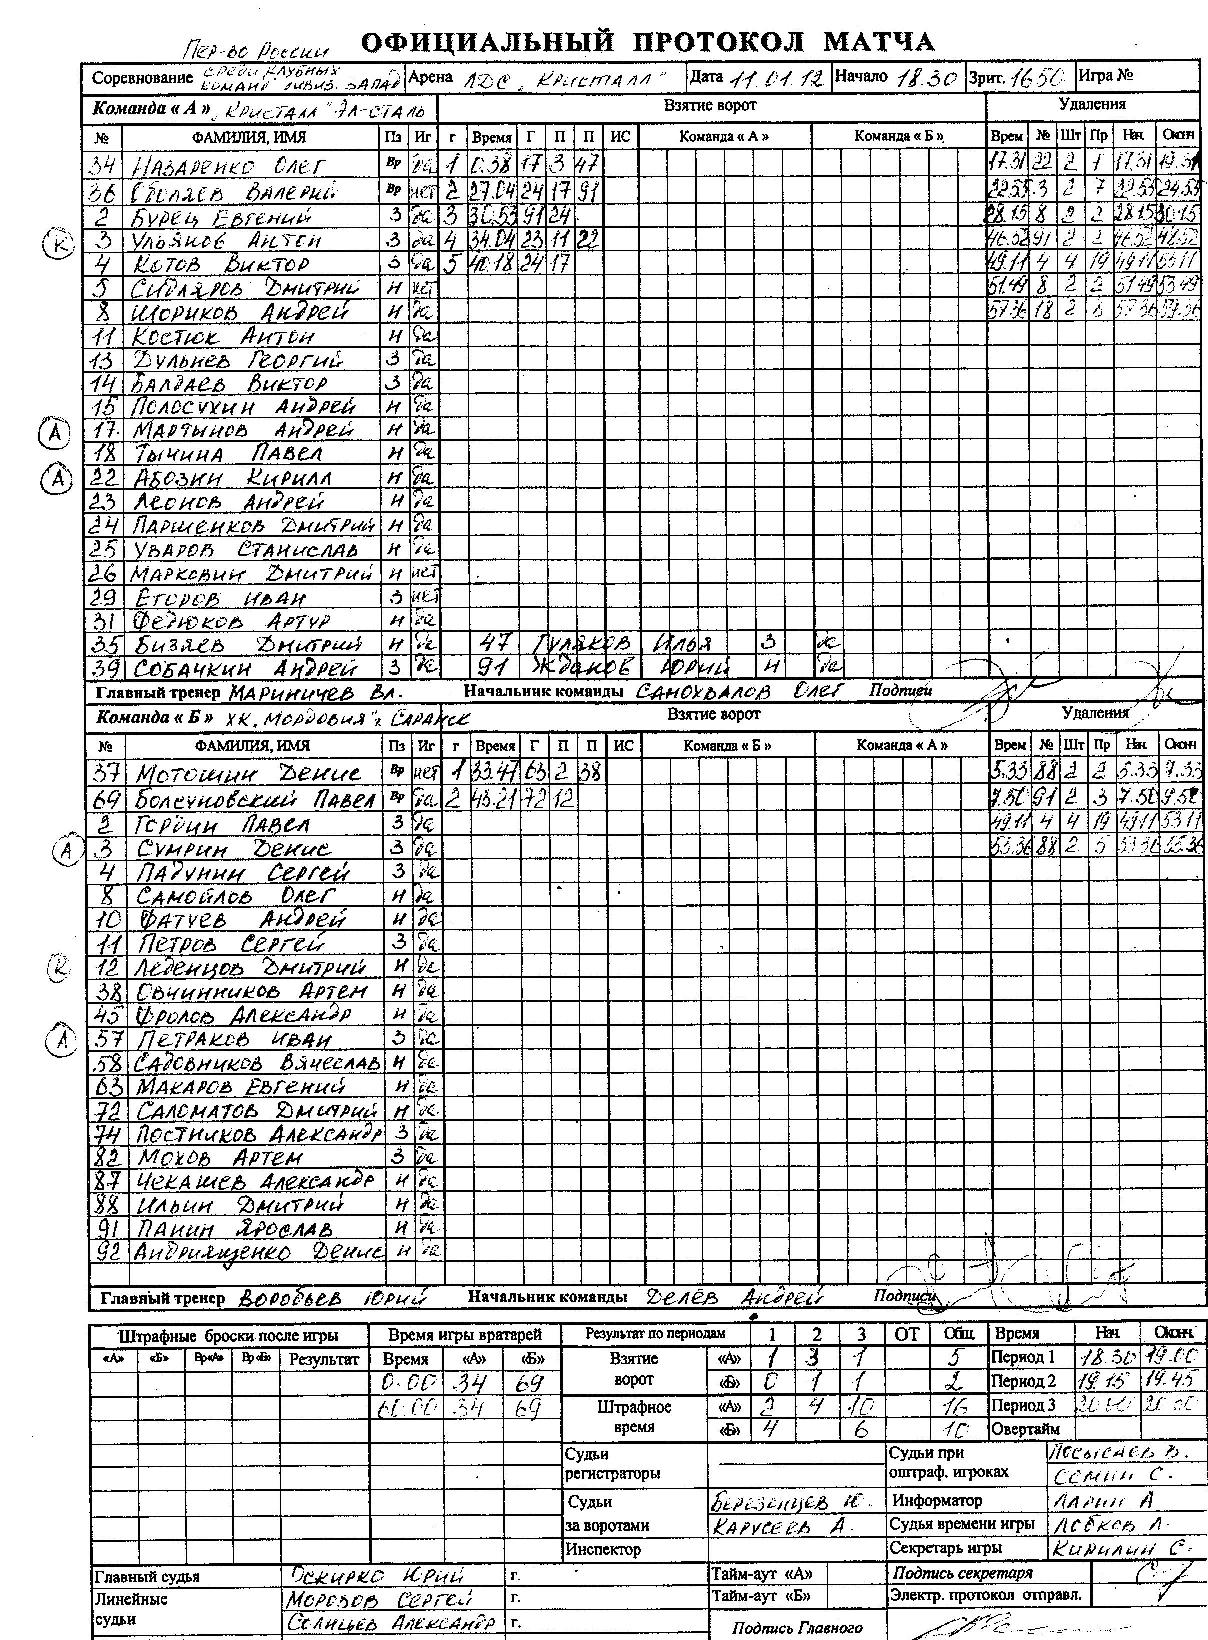 ОФИЦИАЛЬНЫЙ ПРОТОКОЛ МАТЧА
Пер-во России
Соревнование среди клубных команд дивиз. Запад Арена ЛДС „Кристалл" Дата 11.01.12 Начало 18.30 Зрит. 1650 Игра №
Команда « А » „Кристалл" Эл-сталь Взятие ворот Удаления
№ ФАМИЛИЯ, ИМЯ Пз Иг г Время Г П П ИС Команда « А » Команда « Б » Врем № Шт Пр Нач Окон
34 Назаренко Олег Вр да 1 0.38 17 3 47 17.31 22 2 1 17.31 19.31
36 Валерий Вр нет 2 27.04 24 17 91 22.55 3 2 7 22.55 24.55
2 Бурец Евгений З да 3 30.53 91 24 28.15 8 2 2 28.15 30.15
К 3 Ульянов Антон З да 4 34.04 23 11 22 46.52 91 2 2 46.52 48.52
4 Котов Виктор З да 5 40.18 24 17 49.11 4 4 19 49.11 53.11
5 Сидляров Дмитрий Н нет 51.49 8 2 2 51.49 53.49
8 Шориков Андрей Н да 57.36 18 2 57.36 59.36
11 Костюк Антон Н да
13 Дульнев Георгий З да
14 Балдаев Виктор З да
15 Полосухин Андрей Н да
А 17 Мартынов Андрей Н да
18 Тычина Павел Н да
А 22 Абозин Кирилл Н да
23 Леонов Андрей Н да
24 Паршенков Дмитрий Н да
25 Уваров Станислав Н да
26 Маркович Дмитрий Н нет
29 Егоров Иван З нет
31 Федюков Артур Н да
35 Бизяев Дмитрий Н да 47 Гуляков Илья З да
39 Собачкин Андрей З да 91 Жданов Юрий Н да
Главный тренер Мариничев Вл. Начальник команды Самохвалов Олег Подписи
Команда « Б » ХК „Мордовия" г. Саранск Взятие ворот Удаления
№ ФАМИЛИЯ, ИМЯ Пз Иг г Время Г П П ИС Команда « Б » Команда « А » Врем № Шт Пр Нач Окон
37 Мотошин Денис Вр нет 1 33.47 63 2 38 5.33 88 2 2 5.33 7.33
69 Болсуновский Павел Вр да 2 43.21 72 12 7.50 91 2 3 7.50 9.50
2 Гордин Павел З да 49.11 4 4 19 49.11 53.11
А 3 Сумрин Денис З да 53.36 88 2 5 53.36 55.36
4 Падунин Сергей З да
8 Самойлов Олег Н да
10 Фатуев Андрей Н да
11 Петров Сергей З да
К 12 Леденцов Дмитрий Н да
38 Овчинников Артем Н да
45 Фролов Александр Н да
А 57 Петраков Иван З да
58 Садовников Вячеслав Н да
63 Макаров Евгений Н да
72 Саломатов Дмитрий Н да
74 Постников Александр З да
82 Мохов Артем З да
87 Чекашев Александр Н да
88 Ильин Дмитрий Н да
91 Панин Ярослав Н да
92 Андрющенко Денис Н да
Главный тренер Воробьев Юрий Начальник команды Делев Андрей Подписи
Штрафные броски после игры Время игры вратарей Результат по периодам 1 2 3 ОТ Общ Время Нач Оконч
«А» «Б» Вр«А» Вр«Б» Результат Время «А» «Б» Взятие ворот «А» 1 3 1 5 Период 1 18.30 19.00
0.00 34 69 «Б» 0 1 1 2 Период 2 19.15 19.45
60.00 34 69 Штрафное время «А» 2 4 10 16 Период 3
«Б» 4 6 10 Овертайм
Судьи регистраторы Судьи при оштраф. игроках
Семин С.
Судьи за воротами Березенцев Ю. Информатор Ларин А
Карусеев А. Судья времени игры Лобков Л.
Инспектор Секретарь игры Кирилин С.
Главный судья Оскирко Юрий г. Тайм-аут «А» Подпись секретаря
Линейные судьи Морозов Сергей г. Тайм-аут «Б» Электр. протокол отправл.
Селищев Александр г. Подпись Главного